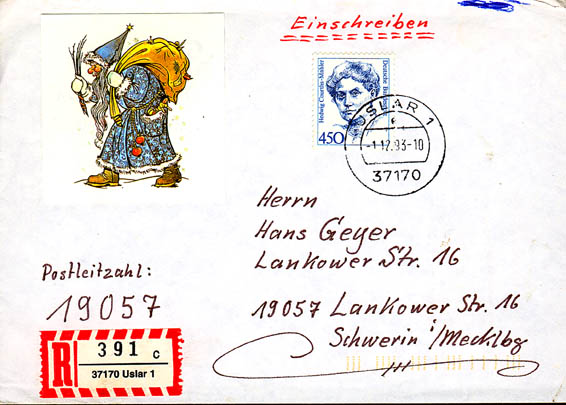 Einschreiben
Hedwig Courths-Mahler
Deutsche Bundespost
450
USLAR 1
-1.12.93-10
37170
Herrn
Hans Geyer
Lankower Str. 16
19057 Lankower Str. 16
Schwerin i/Mecklbg
Postleitzahl:
19057
R
391 c
37170 Uslar 1